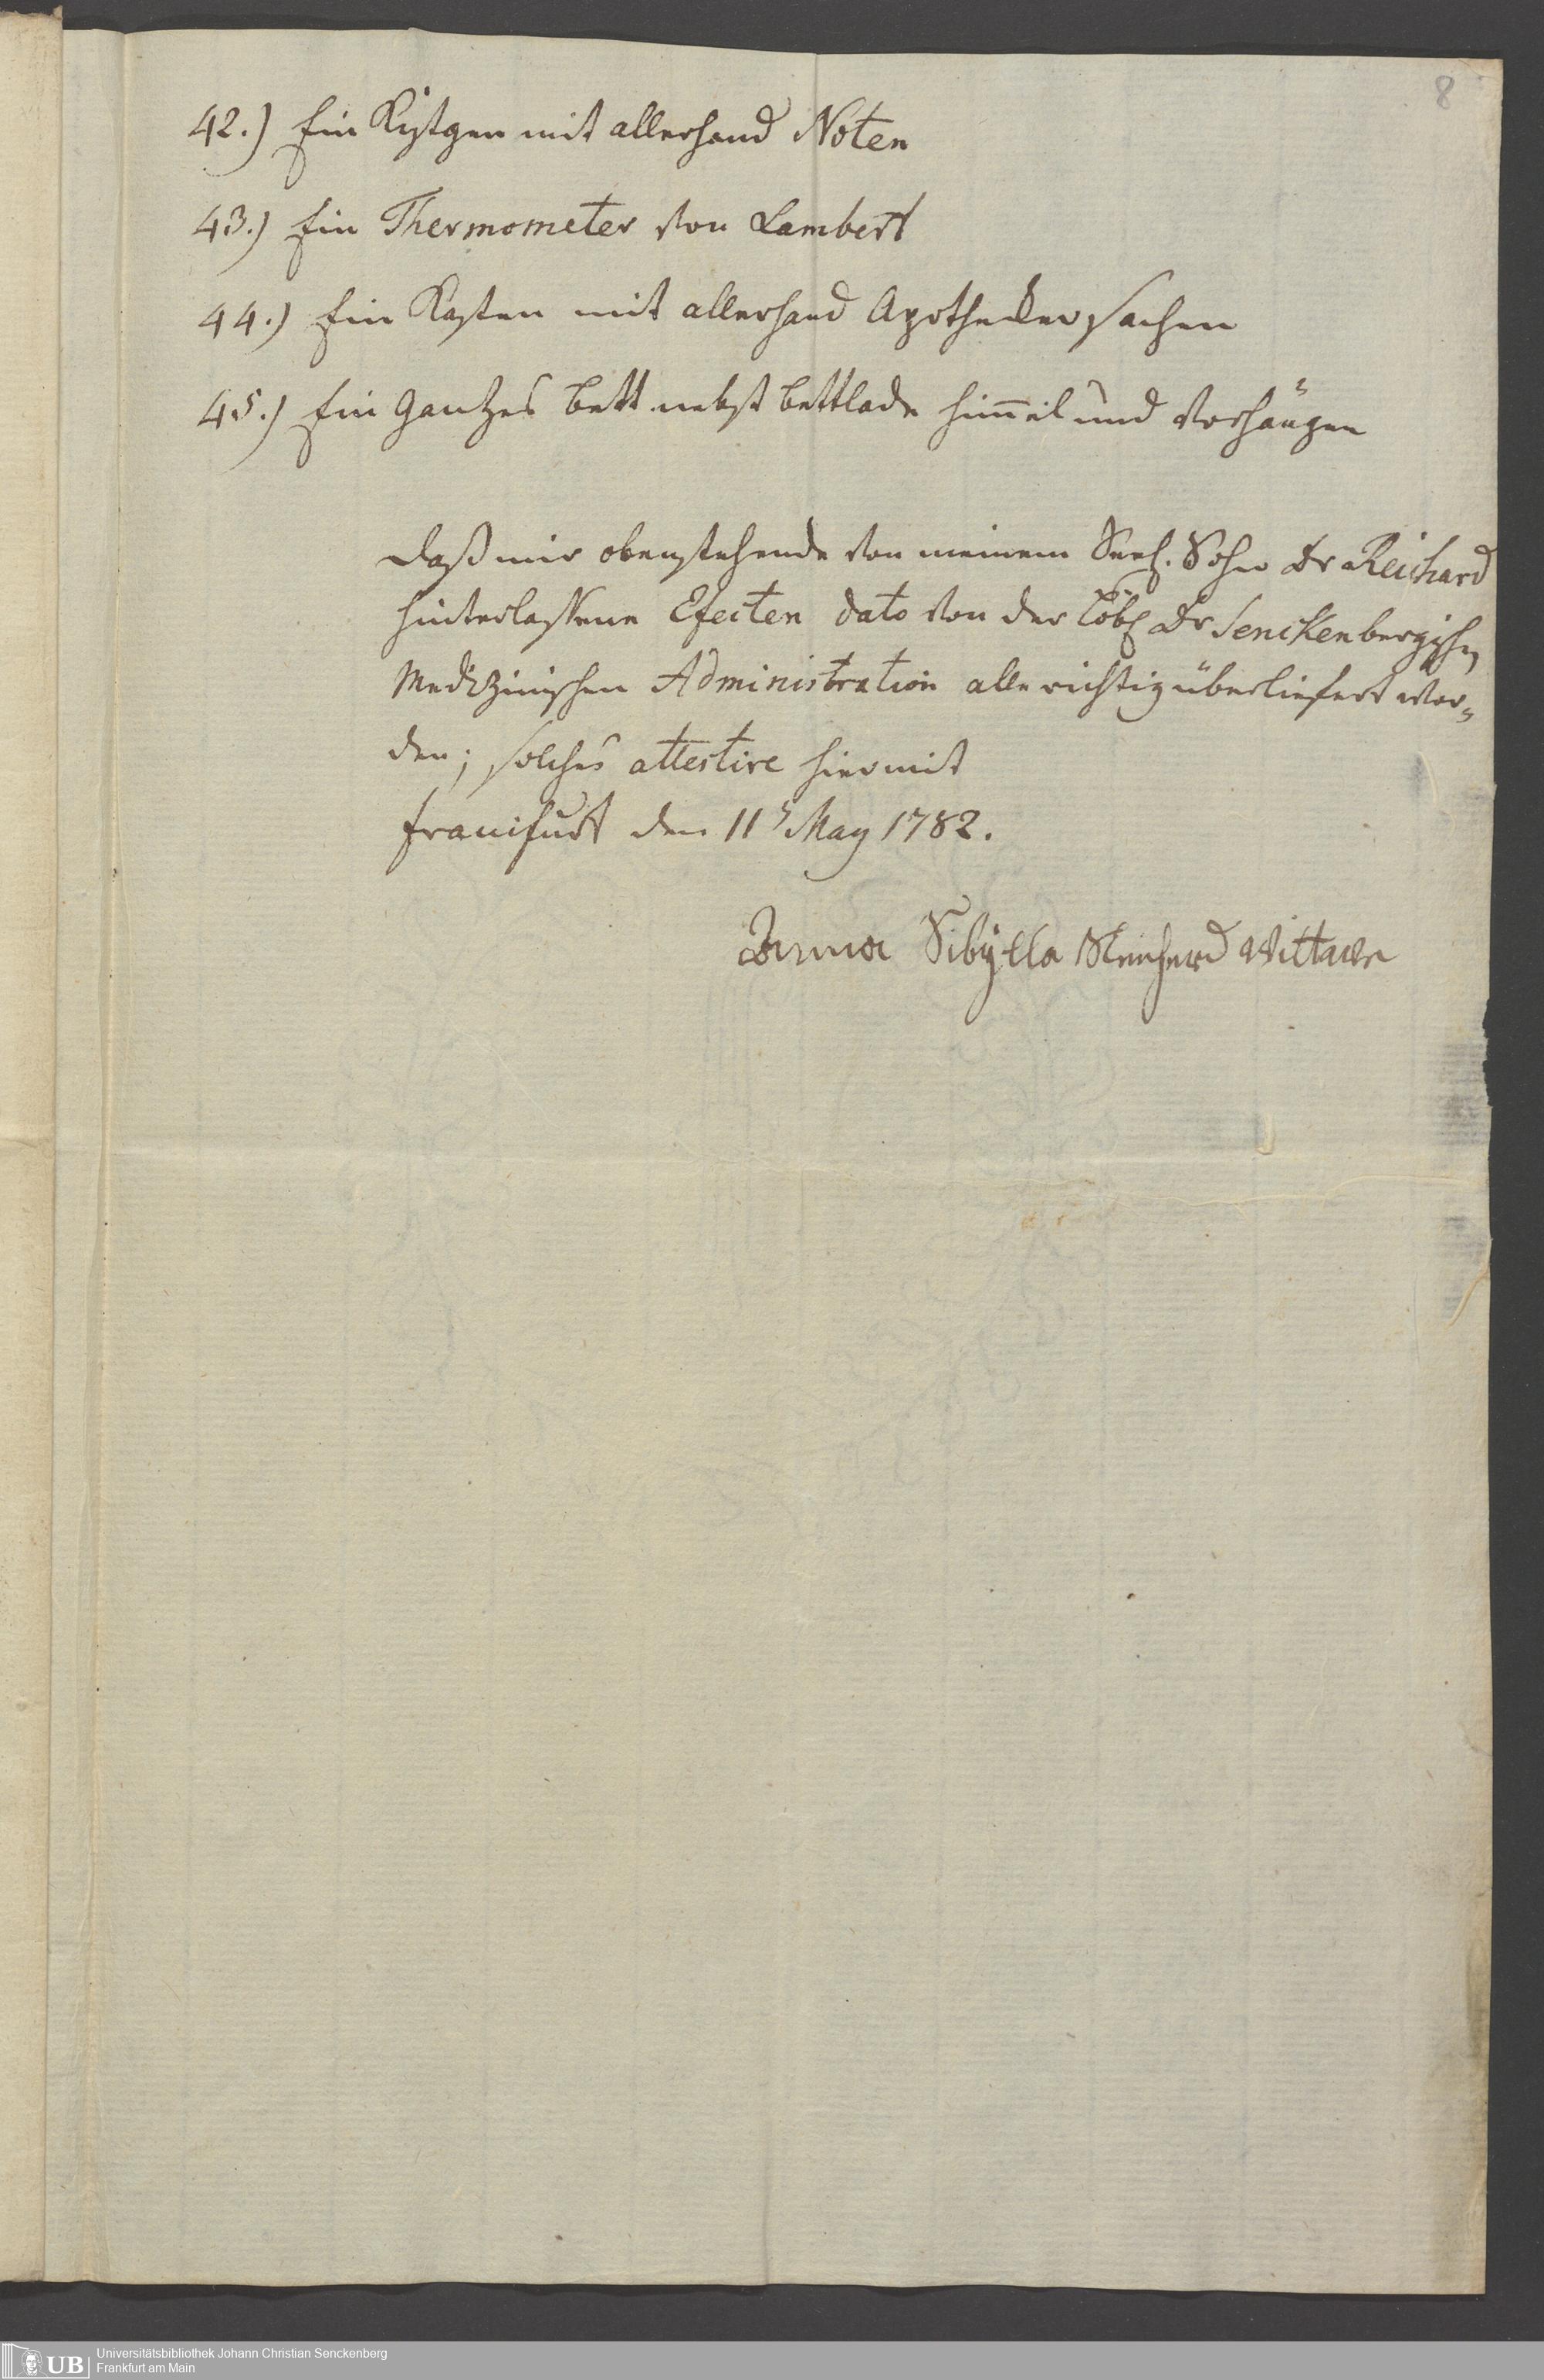 8
42.) Ein Kistgen mit allerhand Noten
43.) Ein Thermometer von Lambert
44.) Ein Kasten mit allerhand Apothecker sachen
45.) Ein Gantzes bett nebst bettlade himmel und Vorhängen
Daß mir obenstehende von meinem Seel. Sohn Dr Reichard
hinterlassene Efecten dato von der Löbl Dr Senckenbergischen
Medizinischen Administration alle richtig überliefert wor-
den; solches attestire hiermit
Franckfurt den 11t May 1782.
Anna Sibÿlla Reichard Wittwe
UB
Universitätsbibliothek Johann Christian Senckenberg
Frankfurt am Main